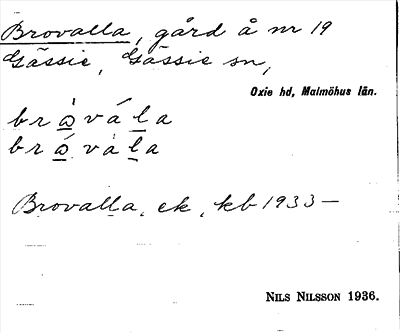 Brovalla, gård å nr 19
Gässie, Gässie sn,
Oxie hd, Malmöhus län.
Brovalla, ek, kb 1933–
NILS NILSSON 1936.